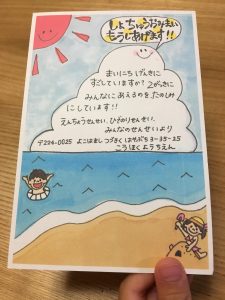 しょちゅうおみまい
もうしあげます!!
まいにち げんきに
すごしていますか? 2がっきに
みんなに あえるのを たのしみ
にしています!!
えんちょうせんせい、ひだりせんせい、
みんなのせんせいより
〒224-0025 よこはまし つづきく はやぶち 3-35-25
こうほくようちえん